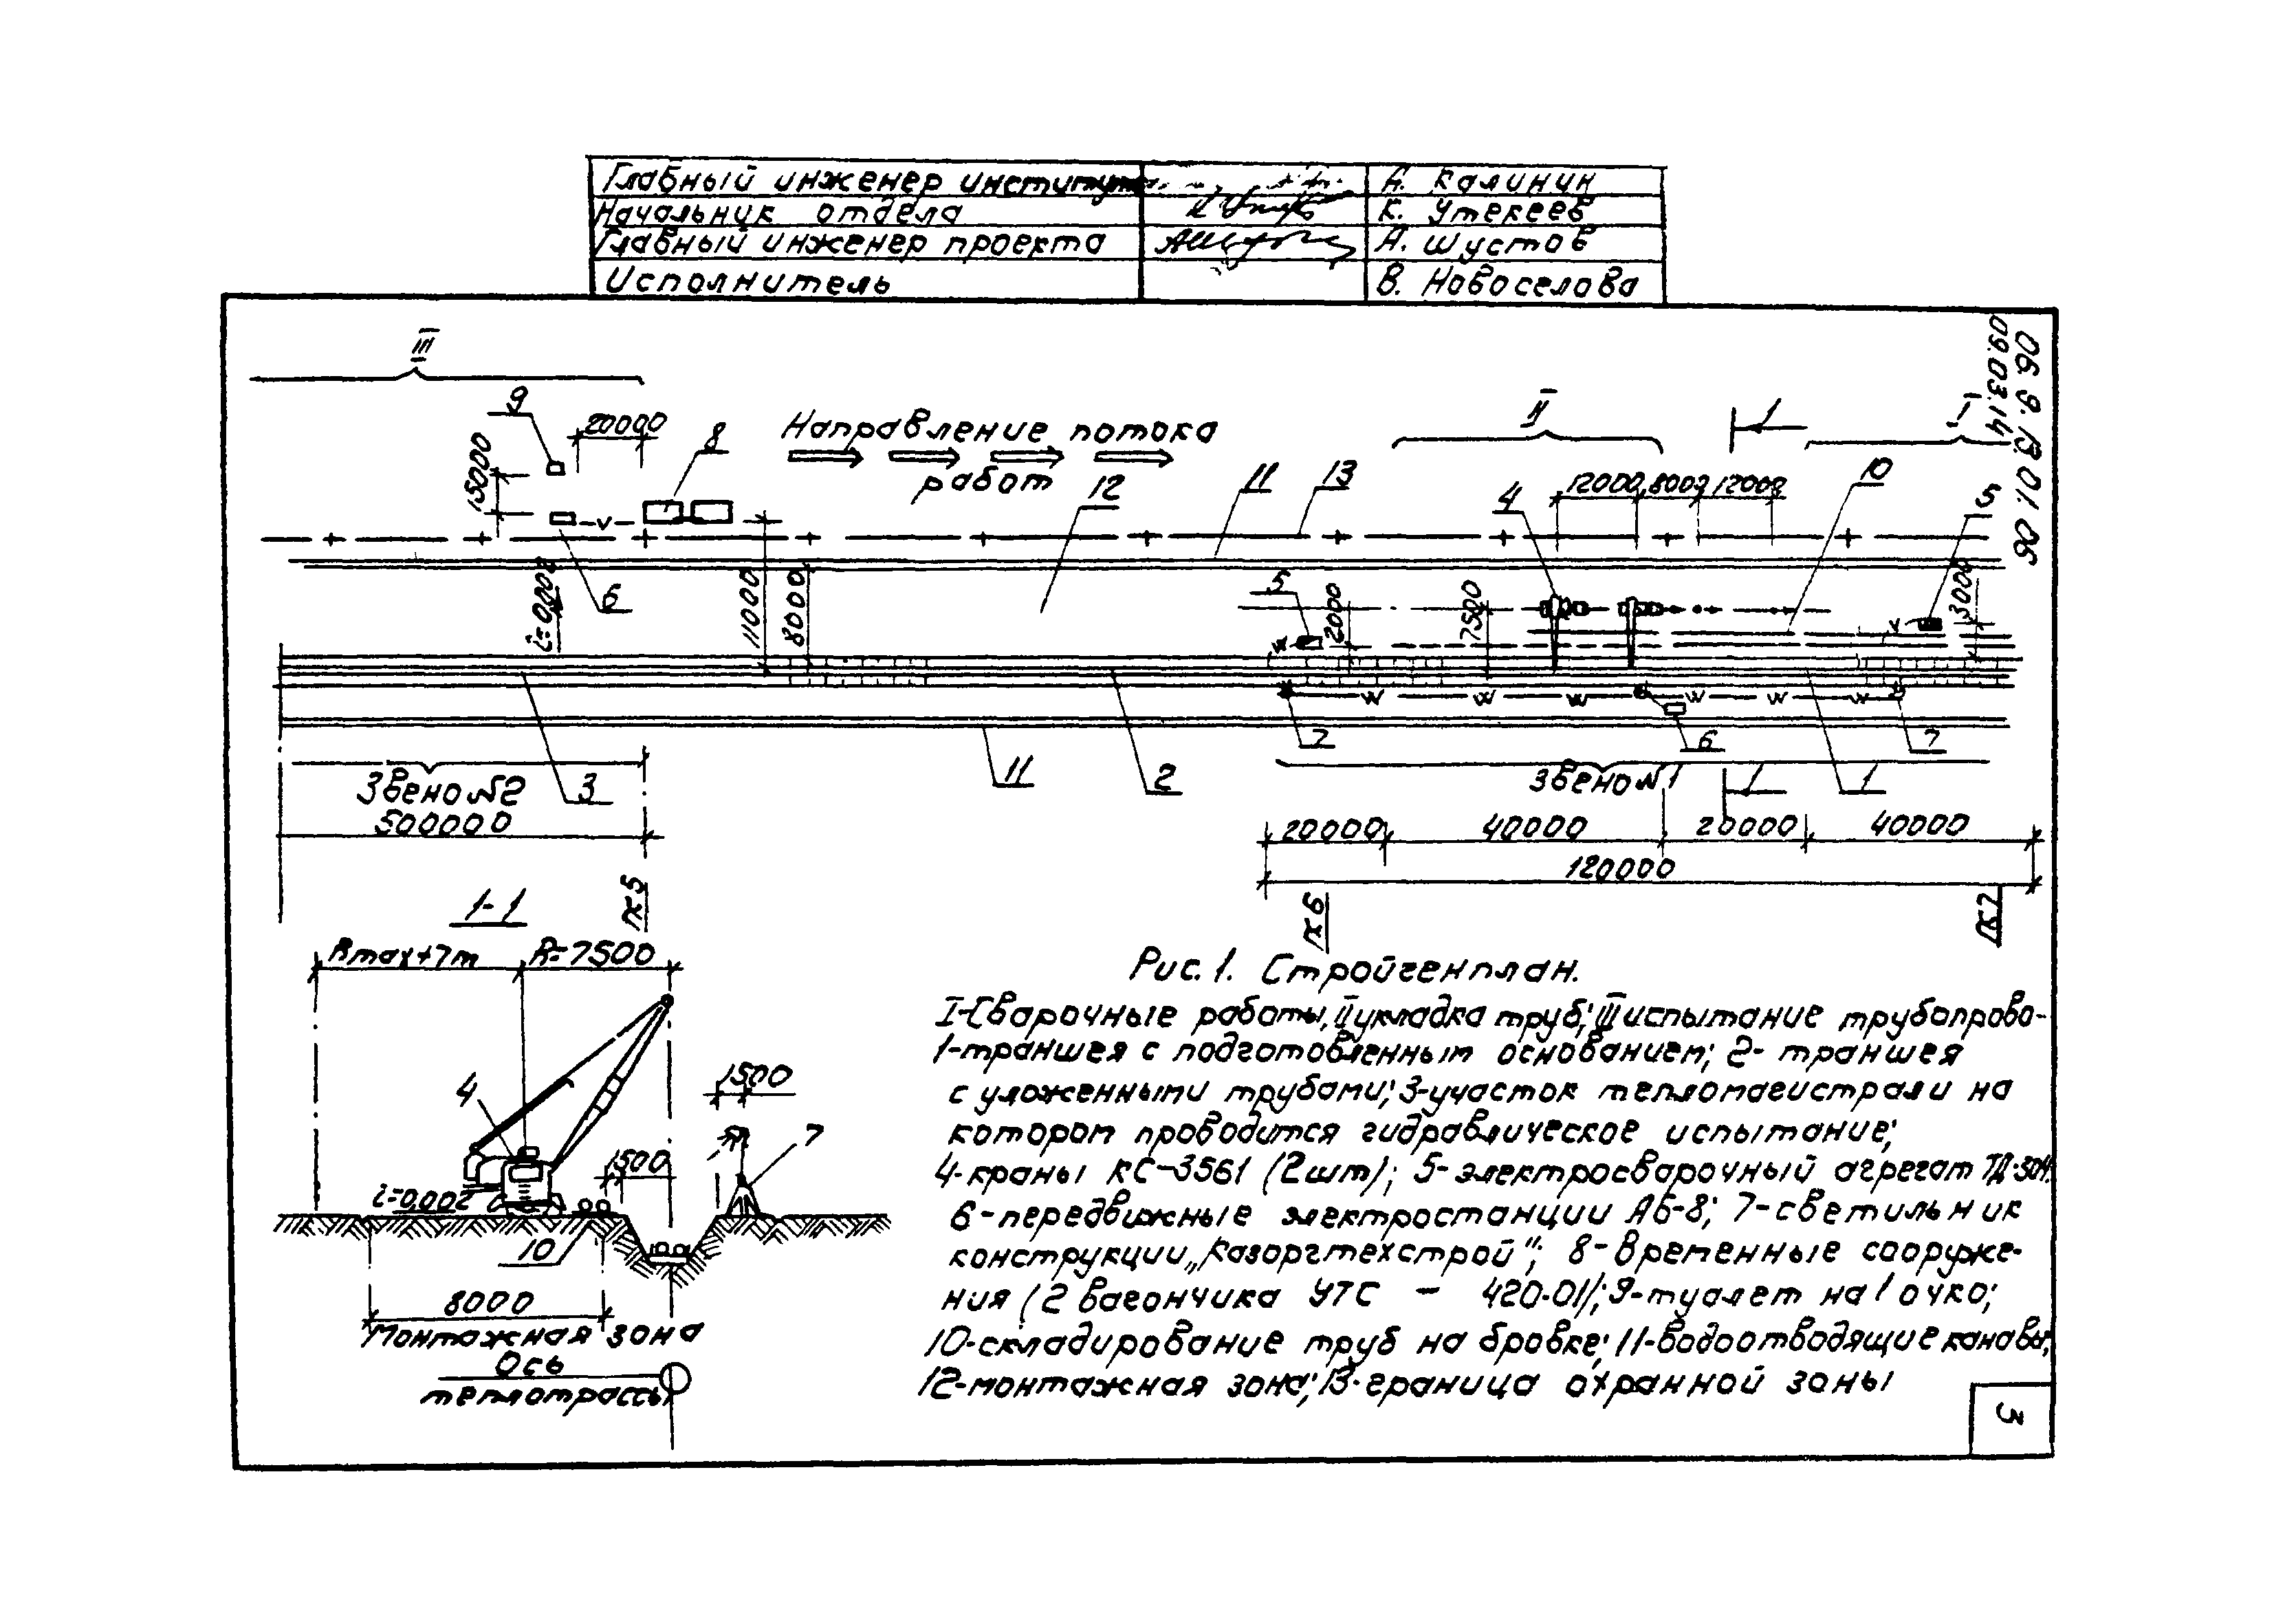 Главный инженер института А. Калинин
Начальник отдела К. Утекеев
Главный инженер проекта А. Шустов
Исполнитель В. Новоселова
06.9.13.01.06
09.03.14
III
II
I
1
9
20000
8
Направление потока
работ
15000
12
11
13
4
12000 8000 12000
10
5
i=0,002
6
11000
8000
5
2000
7500
3000
Звено №2
3
11
2
7
Звено №1
6
1
1
7
500000
20000 40000 20000 40000
120000
пк5
пк6
пк7
1-1
Rmax+7m R=7500
4
1500
7
1500
i=0,002
10
8000
Монтажная зона
Ось
теплотрассы
Рис. 1. Стройгенплан.
I-Сварочные работы, II укладка труб; III испытание трубопрово-
1-траншея с подготовленным основанием; 2- траншея
с уложенными трубами; 3-участок тепломагистрали на
котором проводится гидравлическое испытание;
4-краны КС-3561 (2шт); 5-электросварочный агрегат
6-передвижные электростанции АБ-8; 7-светильник
конструкции „Казоргтехстрой"; 8-Временные сооруже-
ния (2 вагончика УТС - 420-01/; 9-туалет на 1 очко;
10-складирование труб на бровке; 11-водоотводящие канавы;
12-монтажная зона; 13-граница охранной зоны
3